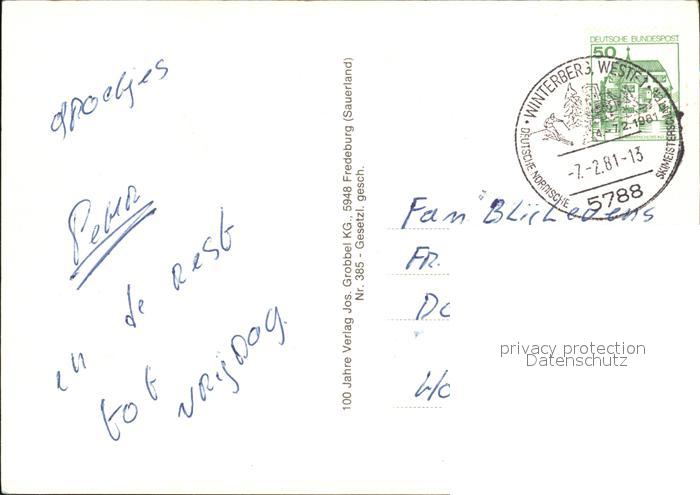 Groetjes
Petra
en de rest
tot vrijdag.
100 Jahre Verlag Jos. Grobbel KG., 5948 Fredeburg (Sauerland)
Nr. 385 - Gesetzl. gesch.
DEUTSCHE BUNDESPOST
50
WINTERBERG, WESTF 1
4.-7.2.1981
-7.-2.81-13
DEUTSCHE NORDISCHE SKIMEISTERSCHAFTEN
5788
Fam
FR.
Do
Wo
privacy protection
Datenschutz